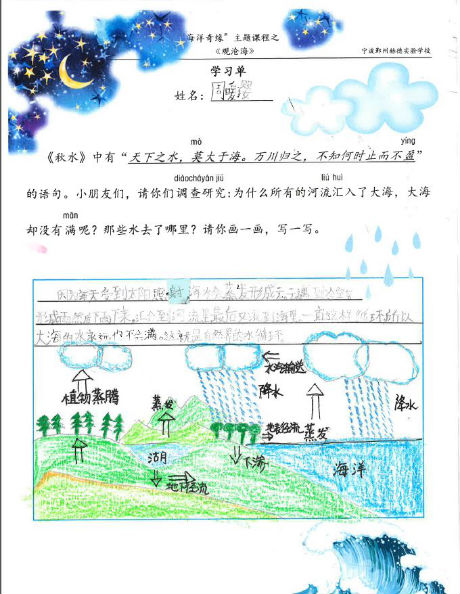 海洋奇缘"主题课程之
《观沧海》
宁波鄞州赫德实验学校
学习单
姓名:
mò yíng
《秋水》中有"天下之水，莫大于海。万川归之，不知何时止而不盈"
diàocháyán jiū liú huì
的语句。小朋友们，请你们调查研究:为什么所有的河流汇入了大海，大海
mǎn
却没有满呢？那些水去了哪里？请你画一画，写一写。
因为每天受到太阳照射,海水蒸发形成云
大海的水永远也不会满。这就是自然界的水循环
水汽输送
植物蒸腾
蒸发
降水
降水
地表径流
蒸发
湖
下渗
地下径流
海洋